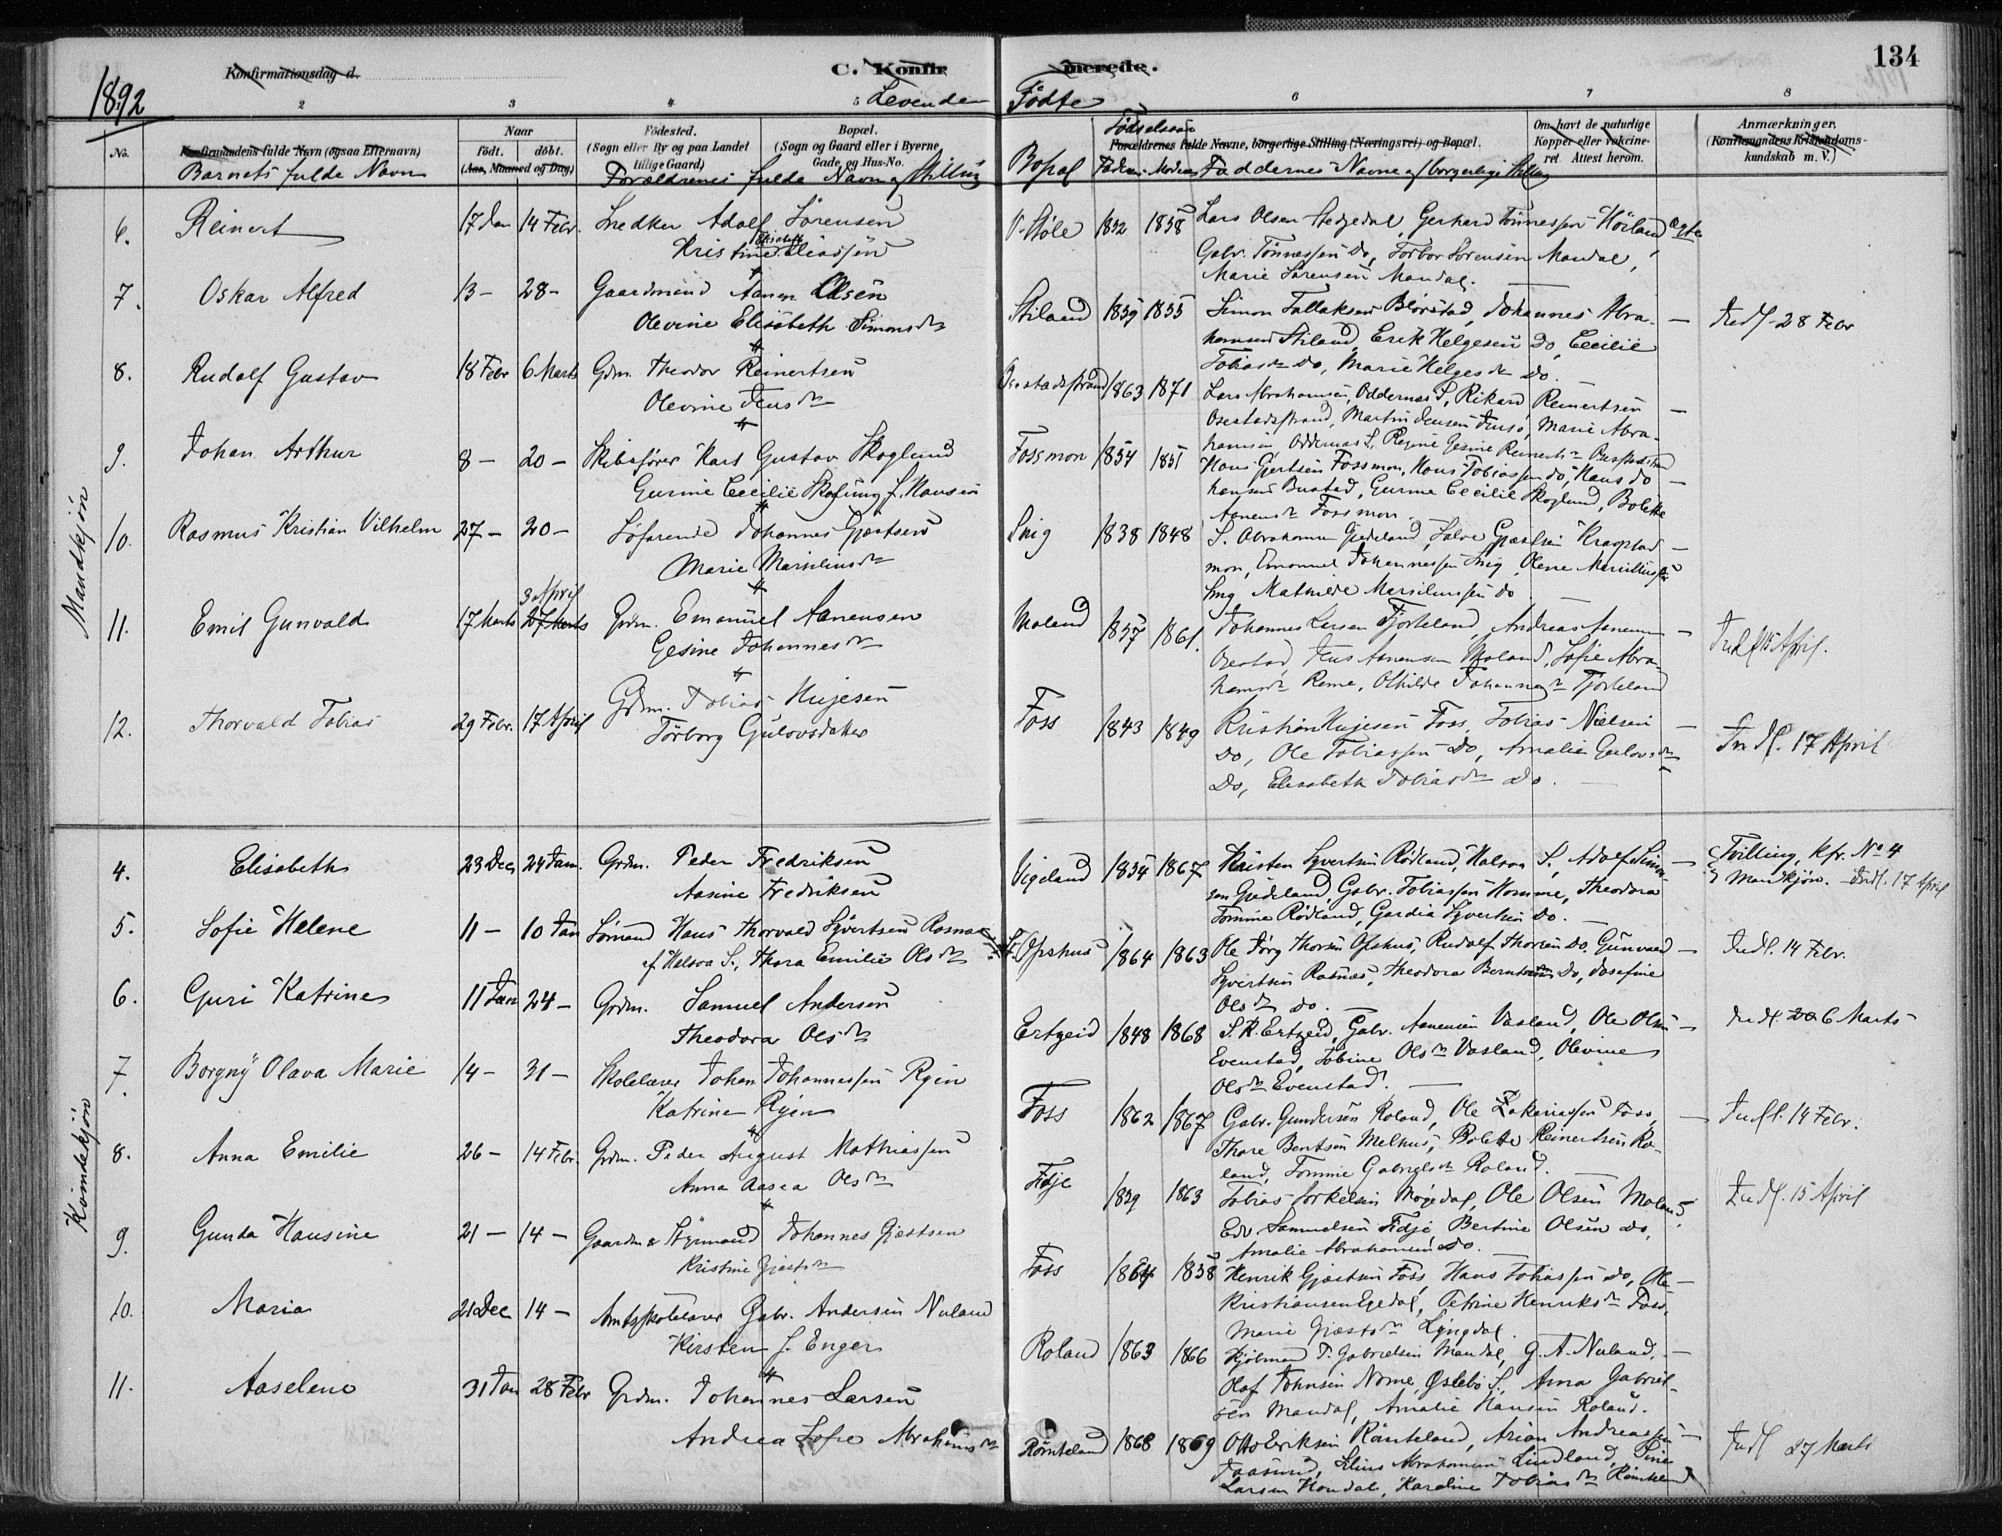 134
1892
Konfirmationsdag d.
C. Konfirmerede.
Levende Födte
2 3 4 5 6 7 8
No.
Konfirmandens fulde Navn (ogsaa Efternavn)
Barnets fulde Navn
Naar
födt. döbt.
(Aar, Maaned og Dag)
Födested.
(Sogn eller By og paa Landet
tillige Gaard)
Bopæl.
(Sogn og Gaard eller i Byerne
Gade og Hus-No.
Forældrenes fulde Navn og Stilling
Bopæl
Födselsaar
Faders Moders
Forældrenes fulde Navne, borgerlige Stilling (Næringsvei) og Bopæl.
Faddernes Navne og borgerlige Stilling
Om havt de naturlige
Kopper eller vakcine-
ret. Attest herom.
Anmærkninger.
(Konfirmandens Kristendoms-
kundskab m. V.)
Mandkjön
6. Reinert 17 Jan 14 Febr. Snedker Adolf Sörensen
Kristine Elisabeth Eliassen
V. Skole 1832 1858 Lars Olsen Hedgedal, Gerhard Tönnessen Körland
Gabr. Tönnessen Do, Torbor Sorensen Mandal,
Marie Sörensen Mandal.
7. Oskar Alfred 13 - 28 - Gaardmand Aanen Olsen
Olevine Elisabeth Simonsdr
Stiland 1859 1855 Simon Tallaksen Blörstad, Johannes Abra-
hamsen Stiland, Erik Helgesen Do, Cecilie
Tobiasdr Do, Marie Helgesdr Do.
Indl. 28 Febr
8. Rudolf Gustav 18 Febr 6 Marts Grdm. Theodor Reinertsen
Olevine Jensdr
1863 1871 Lars Abrahamsen, Oddernes S, Rikard Reinertsen
Osestadstrand, Martin Jensen, Marie Abra-
hamsen, Oddernes S, Regine Gesine Reinertsdr
9. Johan Arthur 8 - 20 - Skibsförer Karl Gustav Skoglund
Gurine Cecilie Skoglund f. Hansen
Fossmon 1854 1851 Hans Gjertsen Fossmon, Hans Tobiassen do, Hans Jo-
hansen Bustad, Gurine Cecilie Skoglund, Bolette
Aanensdr Fossmon
10. Rasmus Kristian Vilhelm 27 - 20 - Söfarende Johannes Gjertsen
Marie Marsiliusdr
Snig 1838 1848 S. Abrahamsen Gjedeland, Salve Gjertsen
mon, Emanuel Johannessen Snig, Olene Marsiliusdr
Snig Mathilde Marsiliussen do
11. Emil Gunvald 17 Marts 3 April 27 Marts Grdm. Emanuel Aanensen
Gesine Johannesdr
Moland 1857 1861. Johannes Larsen Fjorteland, Andreas Aanensen
Osestad, Jens Aanensen Moland, Sofie Abra-
hamsdr Rome, Othilde Johannesdr Fjorteland
Indl 15 April.
12. Thorvald Tobias 29 Febr. 17 April Grdm. Tobias Hujesen
Törborg Gulovsdatter
Foss 1843 1849 Kristian Hujesen Foss, Tobias Nielsen
Do, Ole Tobiassen Do, Amalie Gulovsdr
Do, Elisabeth Tobiasdr Do.
Indl. 17 April
Kvindekjön
4. Elisabeth 23 Dec 24 Jan. Grdm. Peder Fredriksen
Aasine Fredriksen
Vigeland 1834 1867 Kristen Syvertsen Rödland, Halsaa S, Adolf Simon-
sen Gjedeland, Gabr. Tobiassen Homme, Theodora
Tomine Rödland, Gardia Syvertsen do.
Tvilling, kfr. No 4
Mandkjön. Indl. 17 April
5. Sofie Helene 11 - 10 Jan Sömand Hans Thorvald Syvertsen Rosnæs
af Halsaa S., Thora Emilie Olsdr
Ofshus 1864 1863 Ole Jörg Thorsen Ofshus, Rudolf Thorsen Do, Gunvald
Syvertsen Rosnæs, Theodora Berntsen Do, Josefine
Olsdr do.
Indl. 14 Febr.
6. Guri Katrine 11 Jan 24 - Grdm. Samuel Andersen
Theodora Olsdr
Ertzeid 1848 1868 S. R. Ertzeid, Gabr. Aanensen Vasland, Ole Olsen
Evenstad, Tobine Olsdr Vasland, Olevine
Olsdr Evenstad.
Indl. 6 Marts
7. Borgny Olava Marie 14 - 31 - Skolelærer Johan Johannessen Ryen
Katrine Ryen
Foss 1862 1867 Gabr. Gundersen Roland, Ole Zakariassen Foss,
Thore Bentsen Melhus, Bolette Reinertsen Ro-
land, Tomine Gabrielsdr Roland.
Indl. 14 Febr.
8. Anna Emilie 26 - 14 Febr. Grdm. Peder August Mathiassen
Anna Aasea Olsdr
Fidje 1839 1863 Tobias Torkelsen Mögedal, Ole Olsen Moland,
Edv Samuelsen Fidje, Bertine Olsen Do,
Amalie Abrahamsen do.
Indl. 15 April
9. Gunda Hansine 21 - 14 - Gaardm & Styrmand Johannes Gjertsen
Kristine Gjertsdr
Foss 1864 1858 Henrik Gjertsen Foss, Hans Tobiassen Do, Ole
Kristiansen Egedal, Petrine Henriksdr Foss,
Marie Gjertsdr Lyngdal.
10. Maria 21 Dec 14 - Amtsskolelærer Gabr. Andersen Nuland
Kirsten f. Enger
Roland 1863 1866 Kjöbmand T. Gabrielsen Mandal, G. A. Nuland,
Olaf Johnsen Nome, Öslebö S., Anna Gabriel-
sen Mandal, Amalie Hansen Roland.
11. Aaselene 31 Jan 28 Febr Grdm. Johannes Larsen
Andrea Sofie Abrahamsdr
Rönteland 1868 1869 Otto Eriksen Rönteland, Arian Andreassen
Taasund, Abrahamsen Lindland, Sine
Larsen Handal, Karoline Tobiasdr Rönteland
Indl 27 Marts